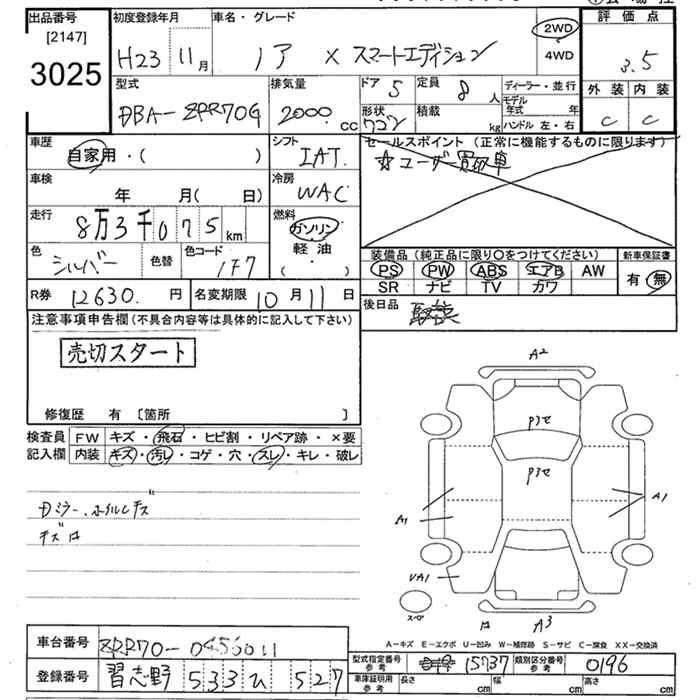 出品番号
[2147]
3025
初度登録年月
H23 11月
車名・グレード
ノア X スマートエディション
2WD
4WD
評価点
3.5
外装 内装
C C
型式
DBA-ZRR70G
排気量
2000 cc
ドア 5
定員 8 人
形状 ワゴン
積載 kg
ディーラー・並行
モデル年式 年
ハンドル 左・右
車歴
自家用・( )
シフト
IAT
セールスポイント (正常に機能するものに限ります)
☆ユーザー買取車
車検
年 月( 日)
冷房
WAC
走行
8万3千075km
燃料
ガソリン
軽油
( )
色
シルバー
色替
色コード
1F7
装備品 (純正品に限り○をつけてください)
PS PW ABS エアB AW
SR ナビ TV カワ
新車保証書
有・無
R券 12630. 円
名変期限 10月11日
後日品
注意事項申告欄 (不具合内容等は具体的に記入して下さい)
売切スタート
修復歴 有 [箇所 ]
検査員記入欄
FW キズ・飛石・ヒビ割・リペア跡・×要
内装 キズ・汚レ・コゲ・穴・スレ・キレ・破レ
Dミラー、ホイルレキズ
キズ ロ
A2
Pクセ
Pクセ
A1
A1
UA1
スペア
ロ
A3
A-キズ E-エクボ U-凹み W-補修跡 S-サビ C-腐食 XX-交換済
車台番号
ZRR70-0456611
登録番号
習志野 533 ひ 527
型式指定番号 参考
15737
類別区分番号 参考
0196
車庫証明用 参考
長さ cm
幅 cm
高さ cm